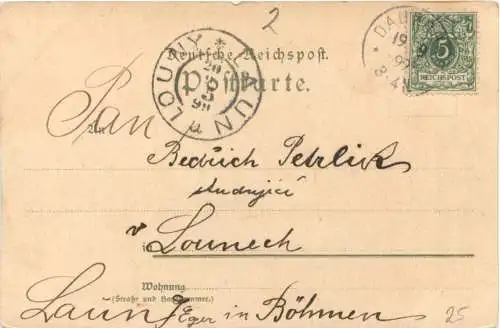 2
Deutsche Reichspost.
Postkarte.
LOUNY * LAUN
20
5
98
DAU
19
9
8
5
REICHSPOST
Pan
An
Bedřich Petrlik
studující
v Lounech
in
Wohnung
(Straße und Hausnummer.)
Laun a/Eger in Böhmen
25